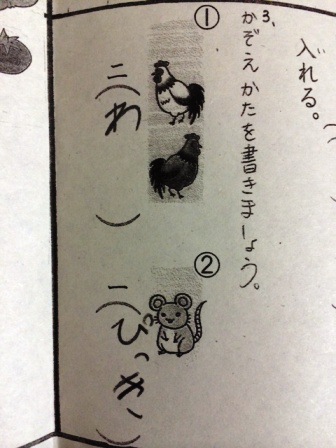 入れる。
3、かぞえかたを書きましょう。
①
二(わ)
②
一(ぴっき)